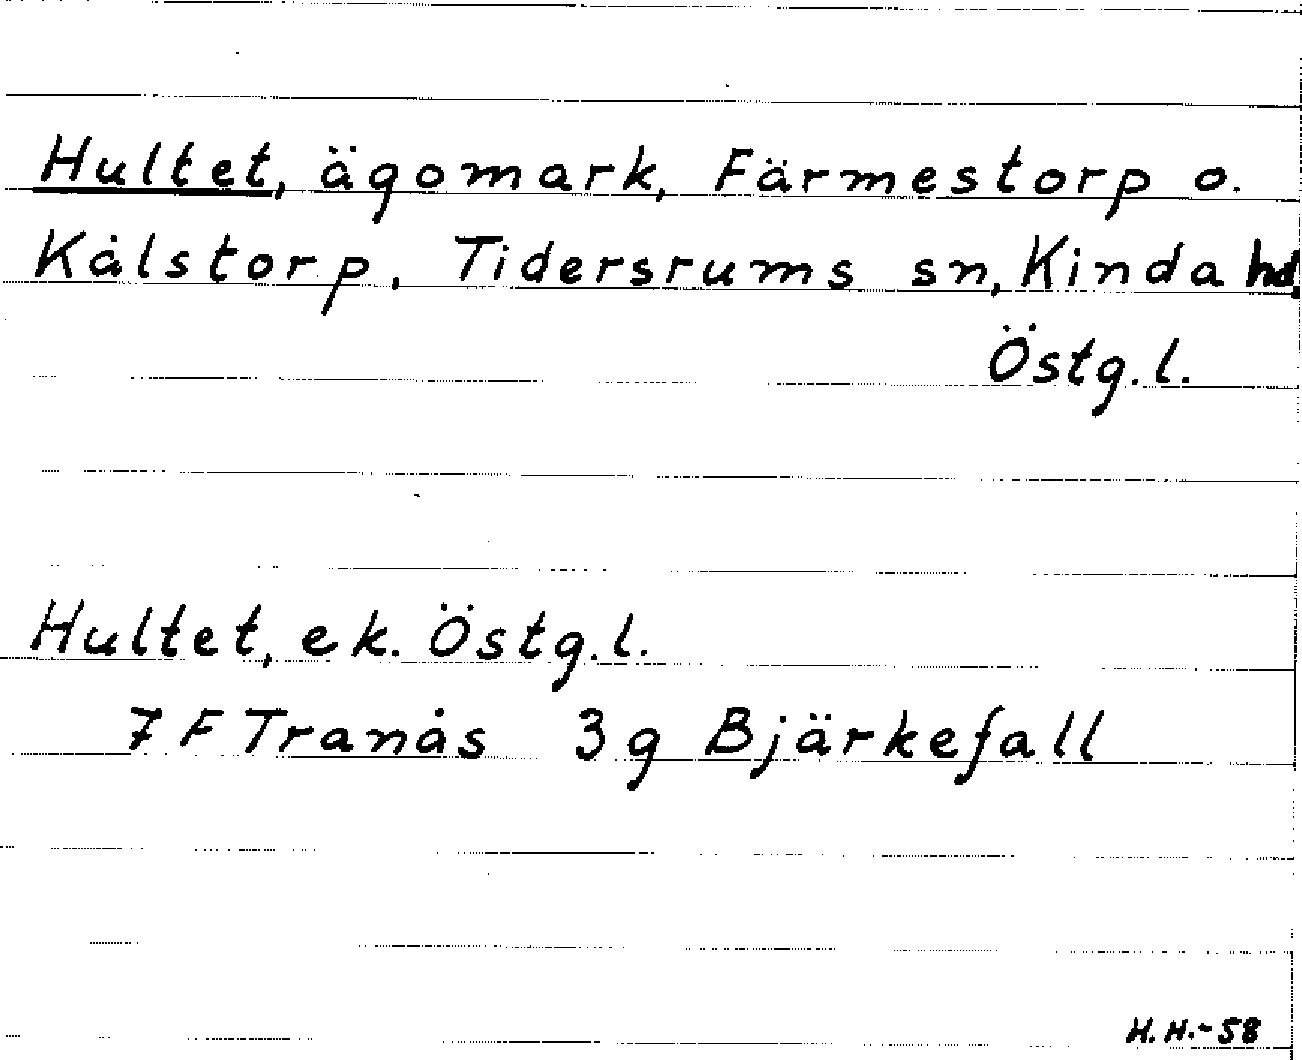 Hultet, ägomark, Färmestorp o.
Kålstorp, Tidersrums sn, Kinda hd.
Östg.l.
Hultet, ek. Östg.l.
7 F Tranås 3g Bjärkefall
H.H.-58